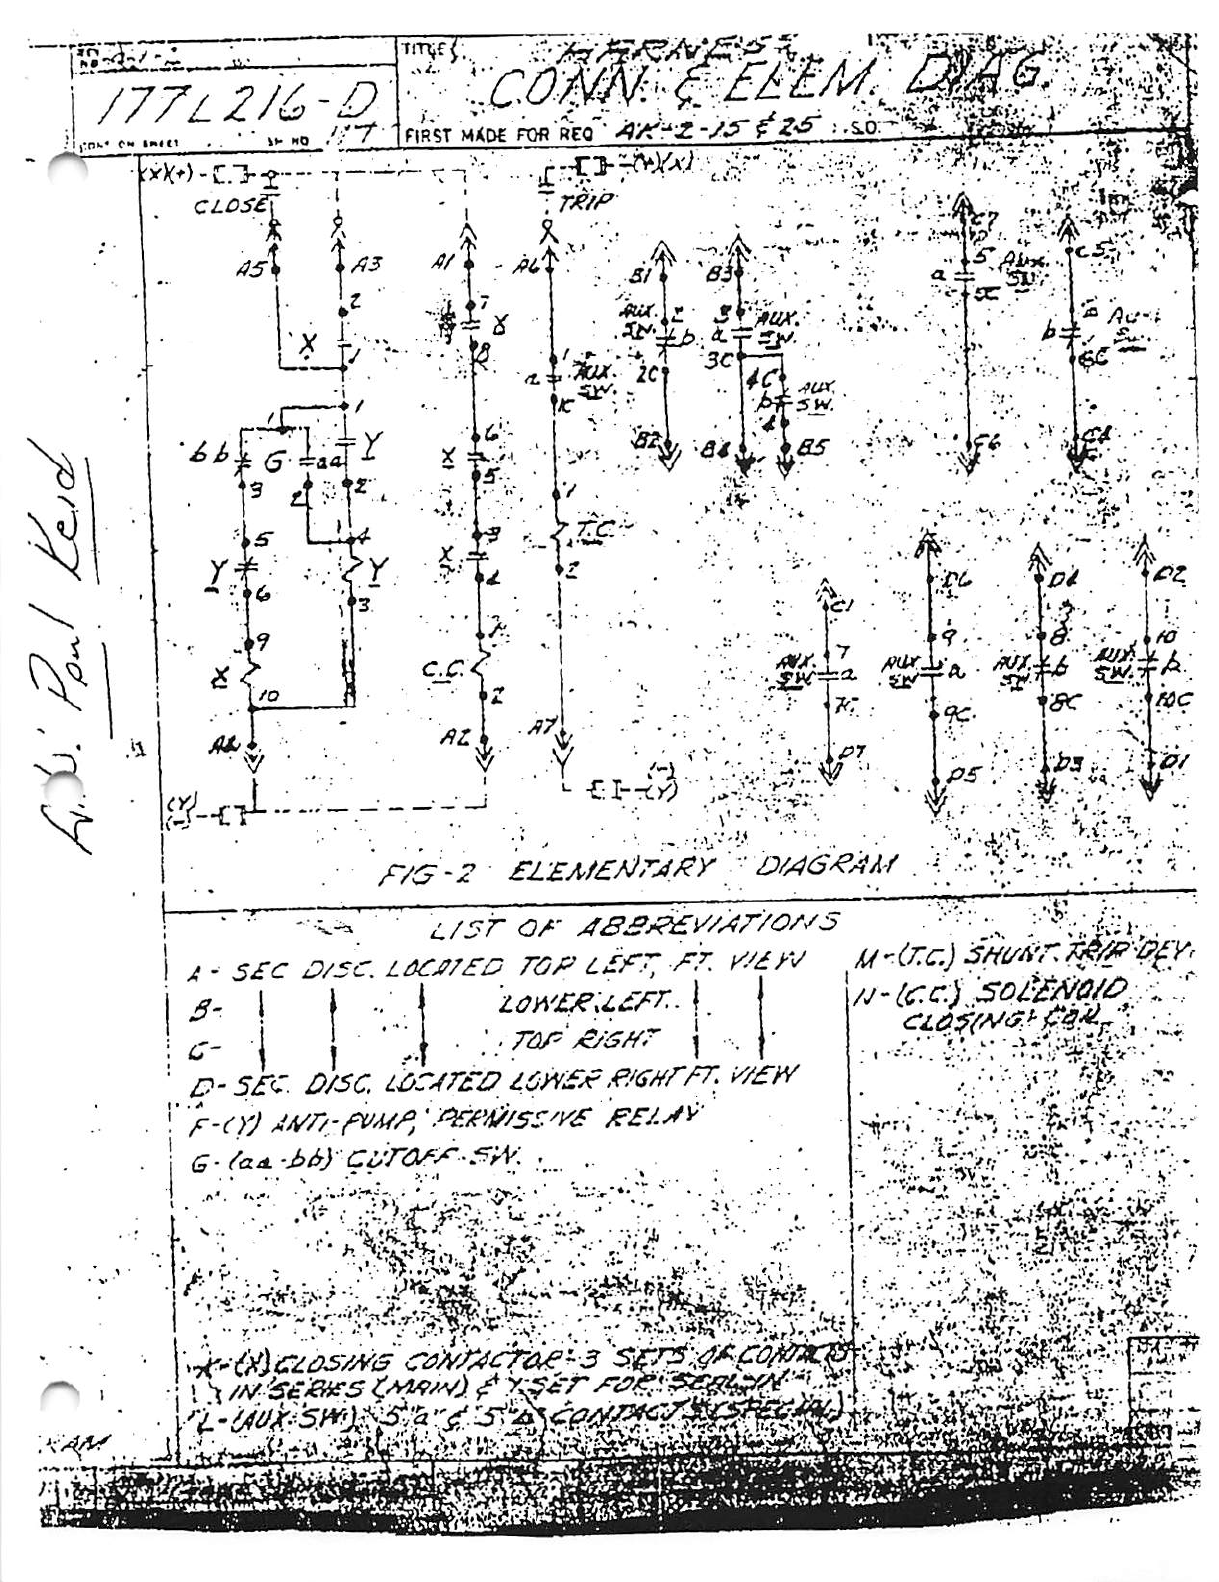 TITLE
HARNESS
CONN. & ELEM. DIAG.
177L216-D
CONT ON SHEET SH NO
FIRST MADE FOR REQ AK-2-15 & 25 S.O.
(X)(+)
CLOSE
TRIP
(+)(X)
A5
A3
A1
A6
B1
B3
C7
C5
2
X
1
7
8
AUX. SW.
2
b
2C
B2
3
a
AUX. SW.
3C
4C
b
AUX. SW.
4
B4
B5
5
a
AUX SW.
C6
b
6C
C4
1
a
AUX. SW.
1
1
bb
G
aa
Y
3
2
2
5
4
Y
Y
6
3
9
X
10
A2
6
X
5
3
X
4
1
C.C.
2
A2
1
T.C.
2
A7
(Y)
(-)
(-)
(Y)
C1
7
AUX. SW.
a
D7
D6
9
AUX SW.
a
9C
D5
D4
8
AUX. SW.
b
8C
D3
D2
10
AUX. SW.
b
10C
D1
FIG-2 ELEMENTARY DIAGRAM
LIST OF ABBREVIATIONS
A- SEC DISC. LOCATED TOP LEFT, FT. VIEW
B- LOWER LEFT
C- TOP RIGHT
D- SEC. DISC. LOCATED LOWER RIGHT FT. VIEW
F-(Y) ANTI-PUMP, PERMISSIVE RELAY
G-(aa-bb) CUTOFF SW.
K-(X) CLOSING CONTACTOR-3 SETS OF CONTACTS
IN SERIES (MAIN) & 1 SET FOR SEAL IN
L-(AUX SW.) 5"a" & 5"b" CONTACTS (SPECIAL)
M-(T.C.) SHUNT TRIP DEV.
N-(C.C.) SOLENOID
CLOSING COIL
Paul Reid